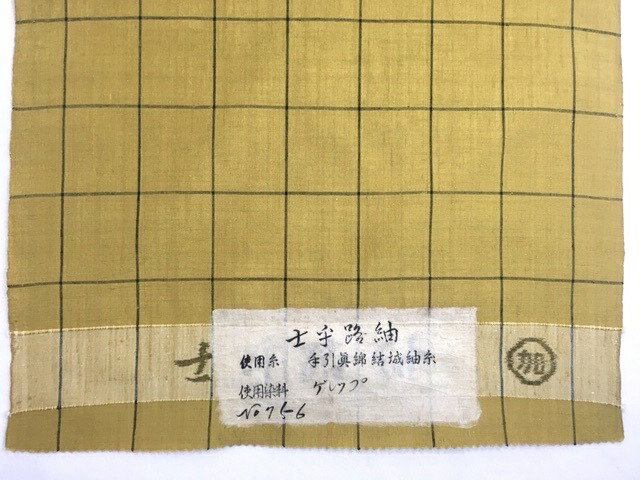 士乎路紬
使用糸 手引眞綿結城紬糸
使用染料 ゲレップ
No 756
士